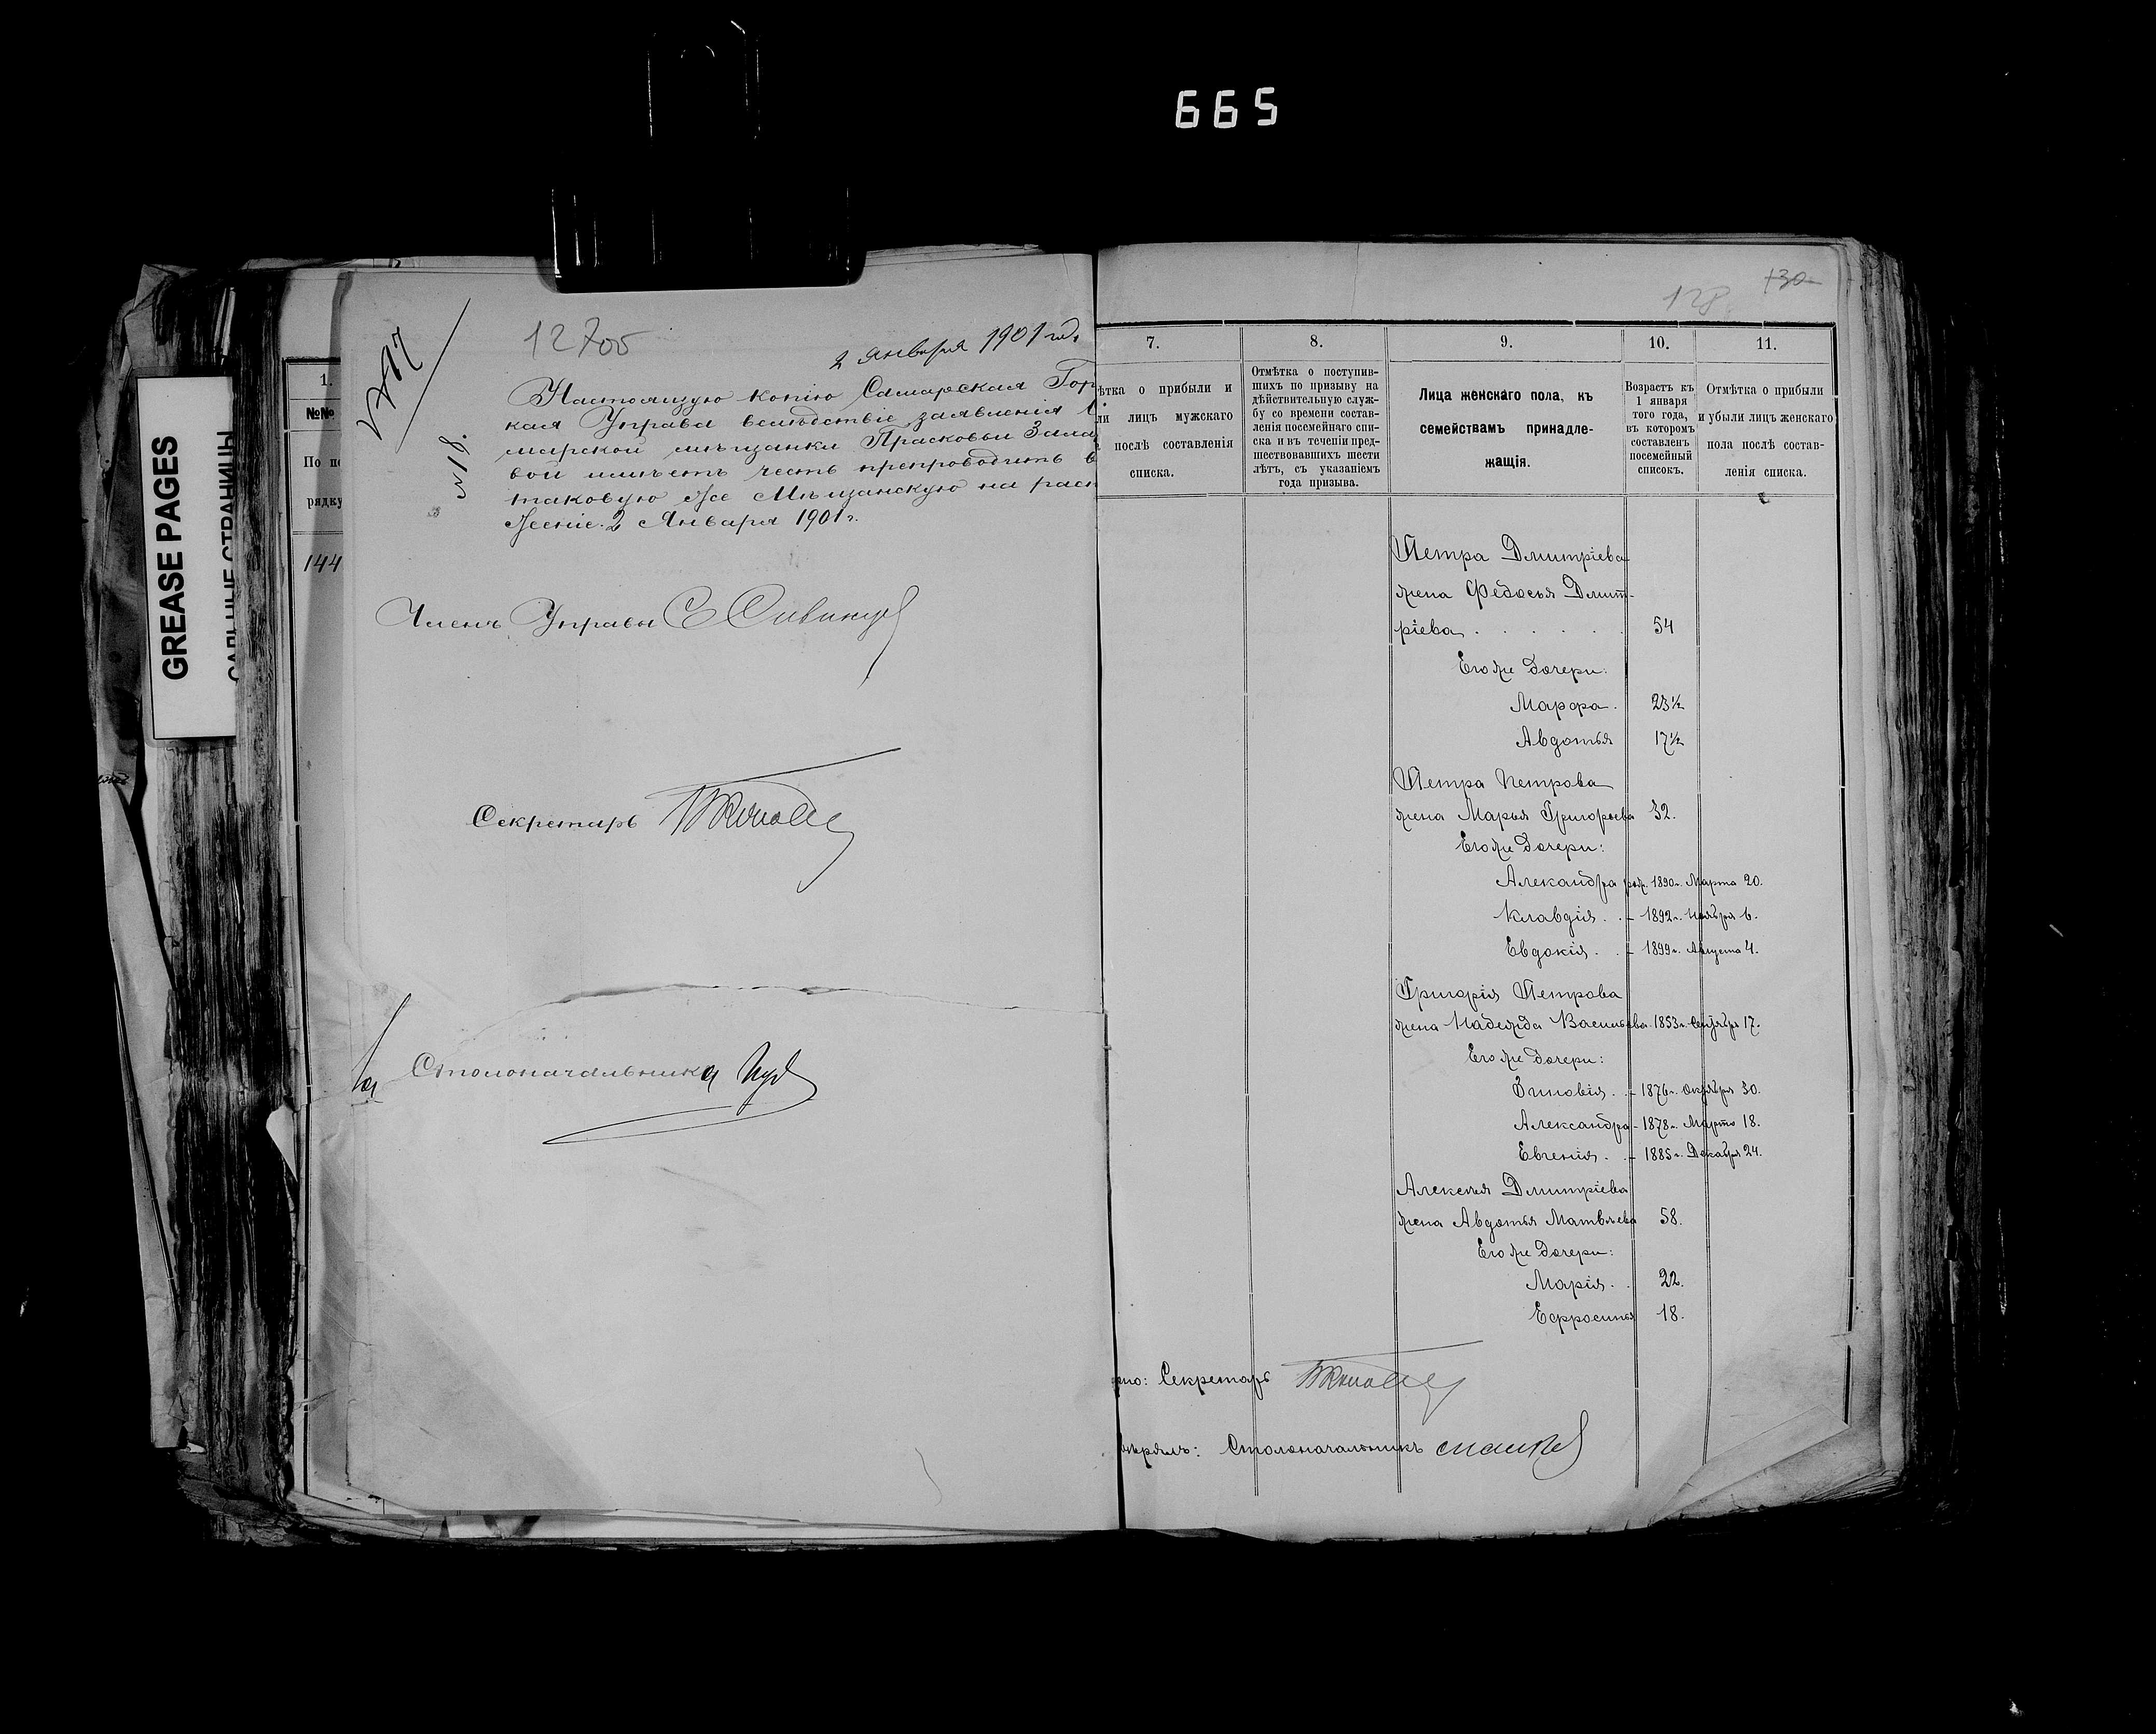 665
GREASE PAGES
САЛЬНЫЕ СТРАНИЦЫ
1.
№№
По по
рядку
144
12705
2 Января 1901 год.
№ 18.
Настоящую копію Самарская Гор
кая Управа вслѣдствіе заявленія С
марской мѣщанки Прасковьи
вой имѣетъ честь препроводить в
таковую же Мѣщанскую на расп
женіе. 2 Января 1901 г.
Членъ Управы С.
Секретарь
За Столоначальника
128
130
7. 8. 9. 10. 11.
ѣтка о прибыли и
ли лицъ мужскаго
послѣ составленія
списка.
Отмѣтка о поступив-
шихъ по призыву на
дѣйствительную служ-
бу со времени состав-
ленія посемейнаго спи-
ска и въ теченіи пред-
шествовавшихъ шести
лѣтъ, съ указаніемъ
года призыва.
Лица женскаго пола, къ
семействамъ принадле-
жащія.
Возрастъ къ
1 января
того года,
въ которомъ
составленъ
посемейный
списокъ.
Отмѣтка о прибыли
и убыли лицъ женскаго
пола послѣ состав-
ленія списка.
Петра Дмитріева
жена Федосья Дмит-
ріева . . . . . . 54
Его же дочери:
Марфа. 23½
Авдотья 17½
Петра Петрова
жена Марья Григорьева 32.
Его же дочери:
Александра род. 1890 г. Марта 20.
Клавдія. . - 1892 г. Ноября 6.
Евдокія. . - 1899 г. Августа 4.
Григорія Петрова
жена Надежда Васильева 1853 г. Сентября 17.
Его же дочери:
Зиновія. . - 1876 г. Октября 30.
Александра - 1878 г. Марта 18.
Евгенія. . - 1885 г. Декабря 24.
Алексѣя Дмитріева
жена Авдотья Матвѣева 58.
Его же дочери:
Марія. . 22.
Ефросинья 18.
рно: Секретарь
ѣрялъ: Столоначальникъ